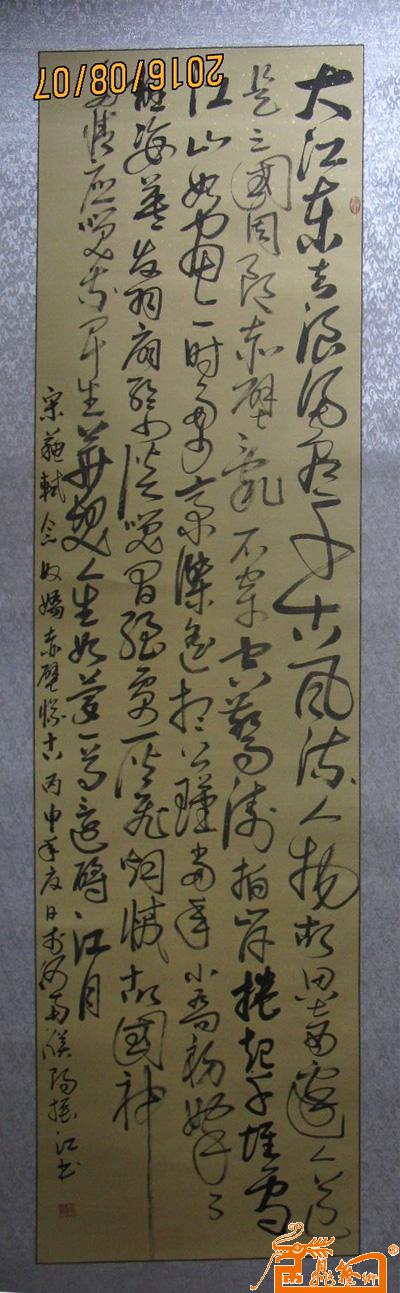 大江东去浪淘尽千古风流人物故垒西边人道
是三国周郎赤壁乱石穿空惊涛拍岸捲起千堆雪
江山如画一时多少豪杰遥想公瑾当年小乔初嫁了
雄姿英发羽扇纶巾谈笑间强虏灰飞烟灭故国神
多情应笑我早生华发人生如梦一尊还酹江月
宋苏轼念奴娇赤壁怀古丙申年夏日于河南濮阳振江书
2016/08/07